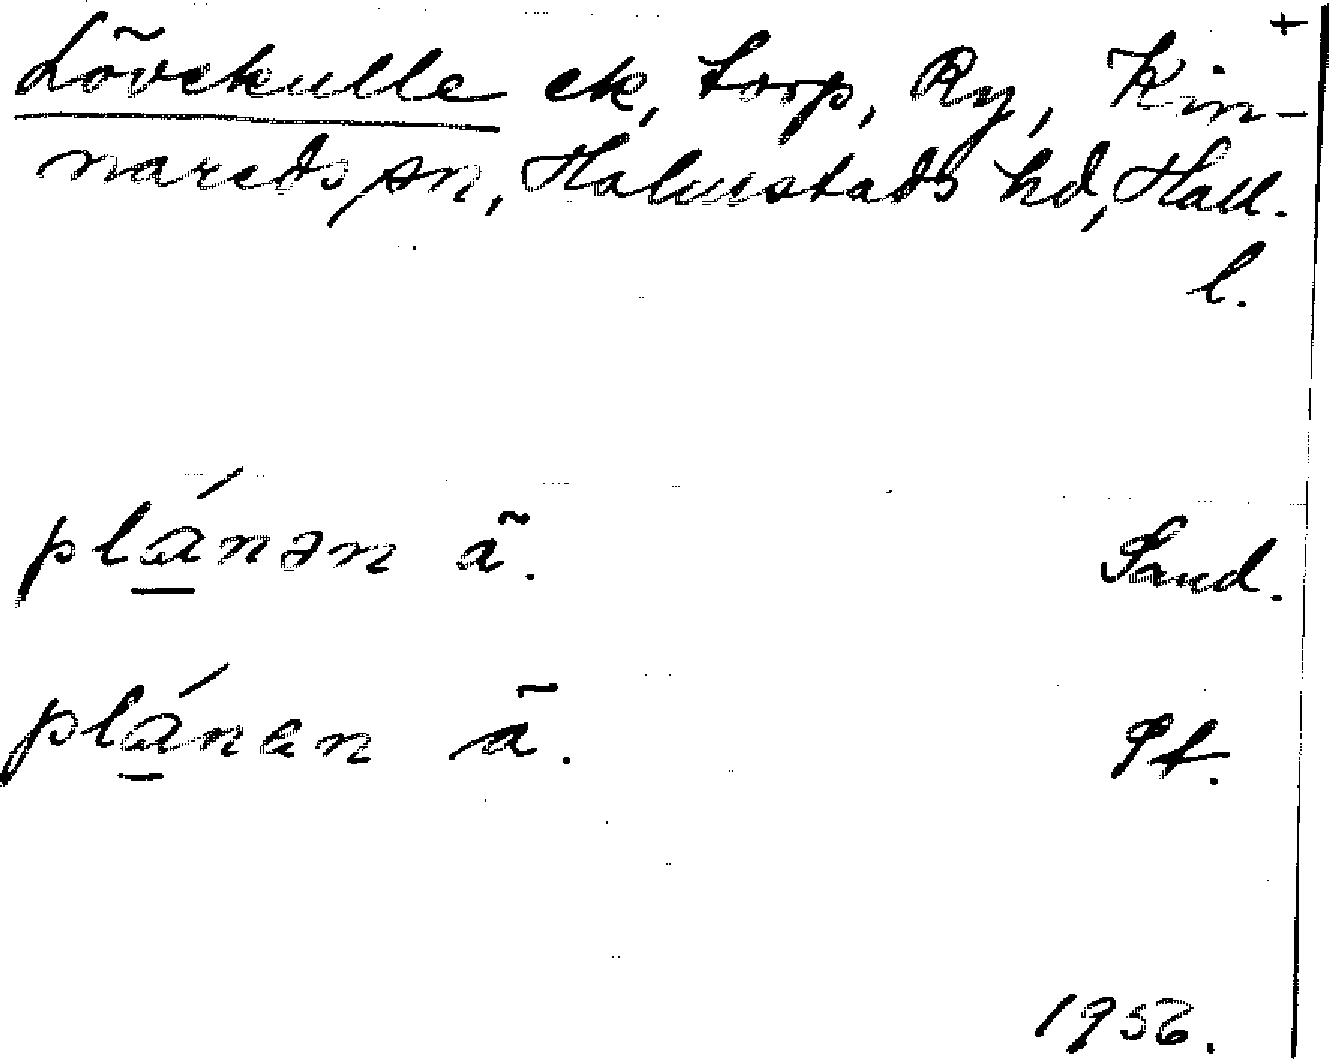 +
Lövekulle ek, torp, Ry, Kin-
nareds sn, Halmstads hd, Hall.
l.
plánən ã.
Sand.
plánen ã.
Pt.
1956.